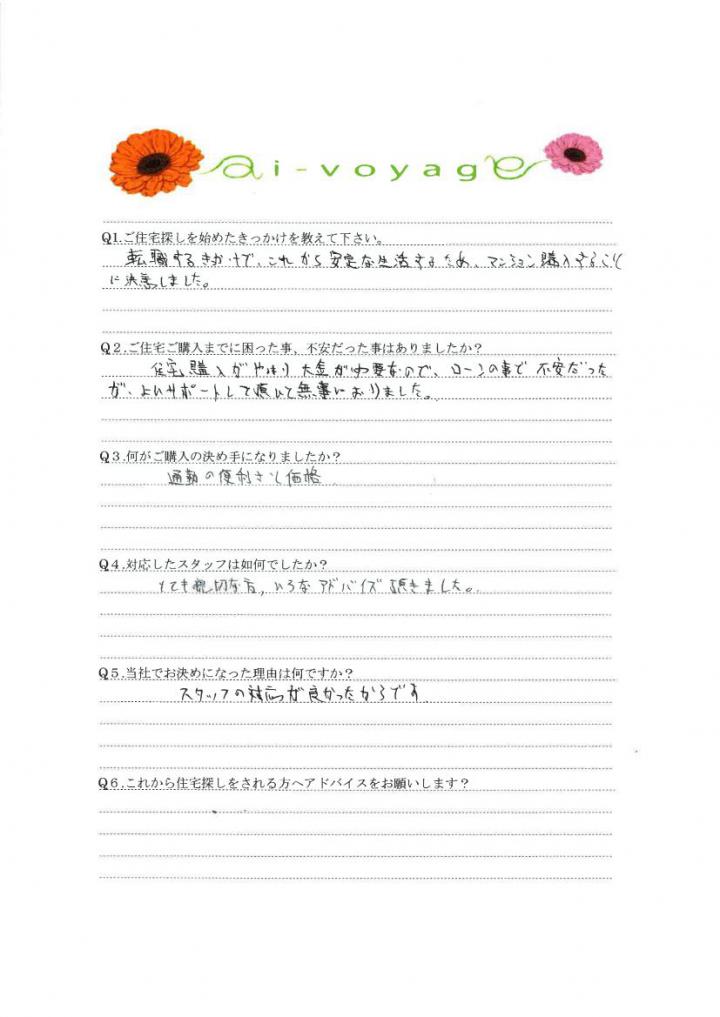 ai-voyage
Q1.ご住宅探しを始めたきっかけを教えて下さい。
転職するきかけで、これから安定な生活するため、マンション購入すること
に決意しました。
Q2.ご住宅ご購入までに困った事、不安だった事はありましたか？
住宅購入がやはり大金が必要なので、ローンの事で不安だった
が、よいサポートして頂いて無事におりました。
Q3.何がご購入の決め手になりましたか？
通勤の便利さと価格
Q4.対応したスタッフは如何でしたか？
とても親切な方,いろなアドバイズ頂きました。
Q5.当社でお決めになった理由は何ですか？
スタッフの対応が良かったからです
Q6.これから住宅探しをされる方へアドバイスをお願いします？